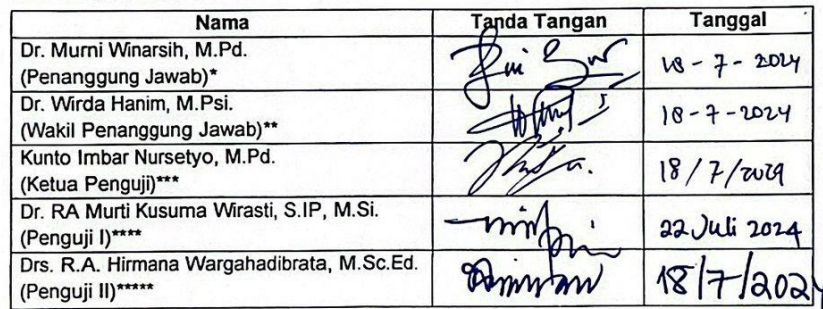 Nama Tanda Tangan Tanggal
Dr. Murni Winarsih, M.Pd.
(Penanggung Jawab)* 18 - 7 - 2024
Dr. Wirda Hanim, M.Psi.
(Wakil Penanggung Jawab)** 18 - 7 - 2024
Kunto Imbar Nursetyo, M.Pd.
(Ketua Penguji)*** 18 / 7 / 2024
Dr. RA Murti Kusuma Wirasti, S.IP, M.Si.
(Penguji I)**** 22 Juli 2024
Drs. R.A. Hirmana Wargahadibrata, M.Sc.Ed.
(Penguji II)***** 18/7/2024